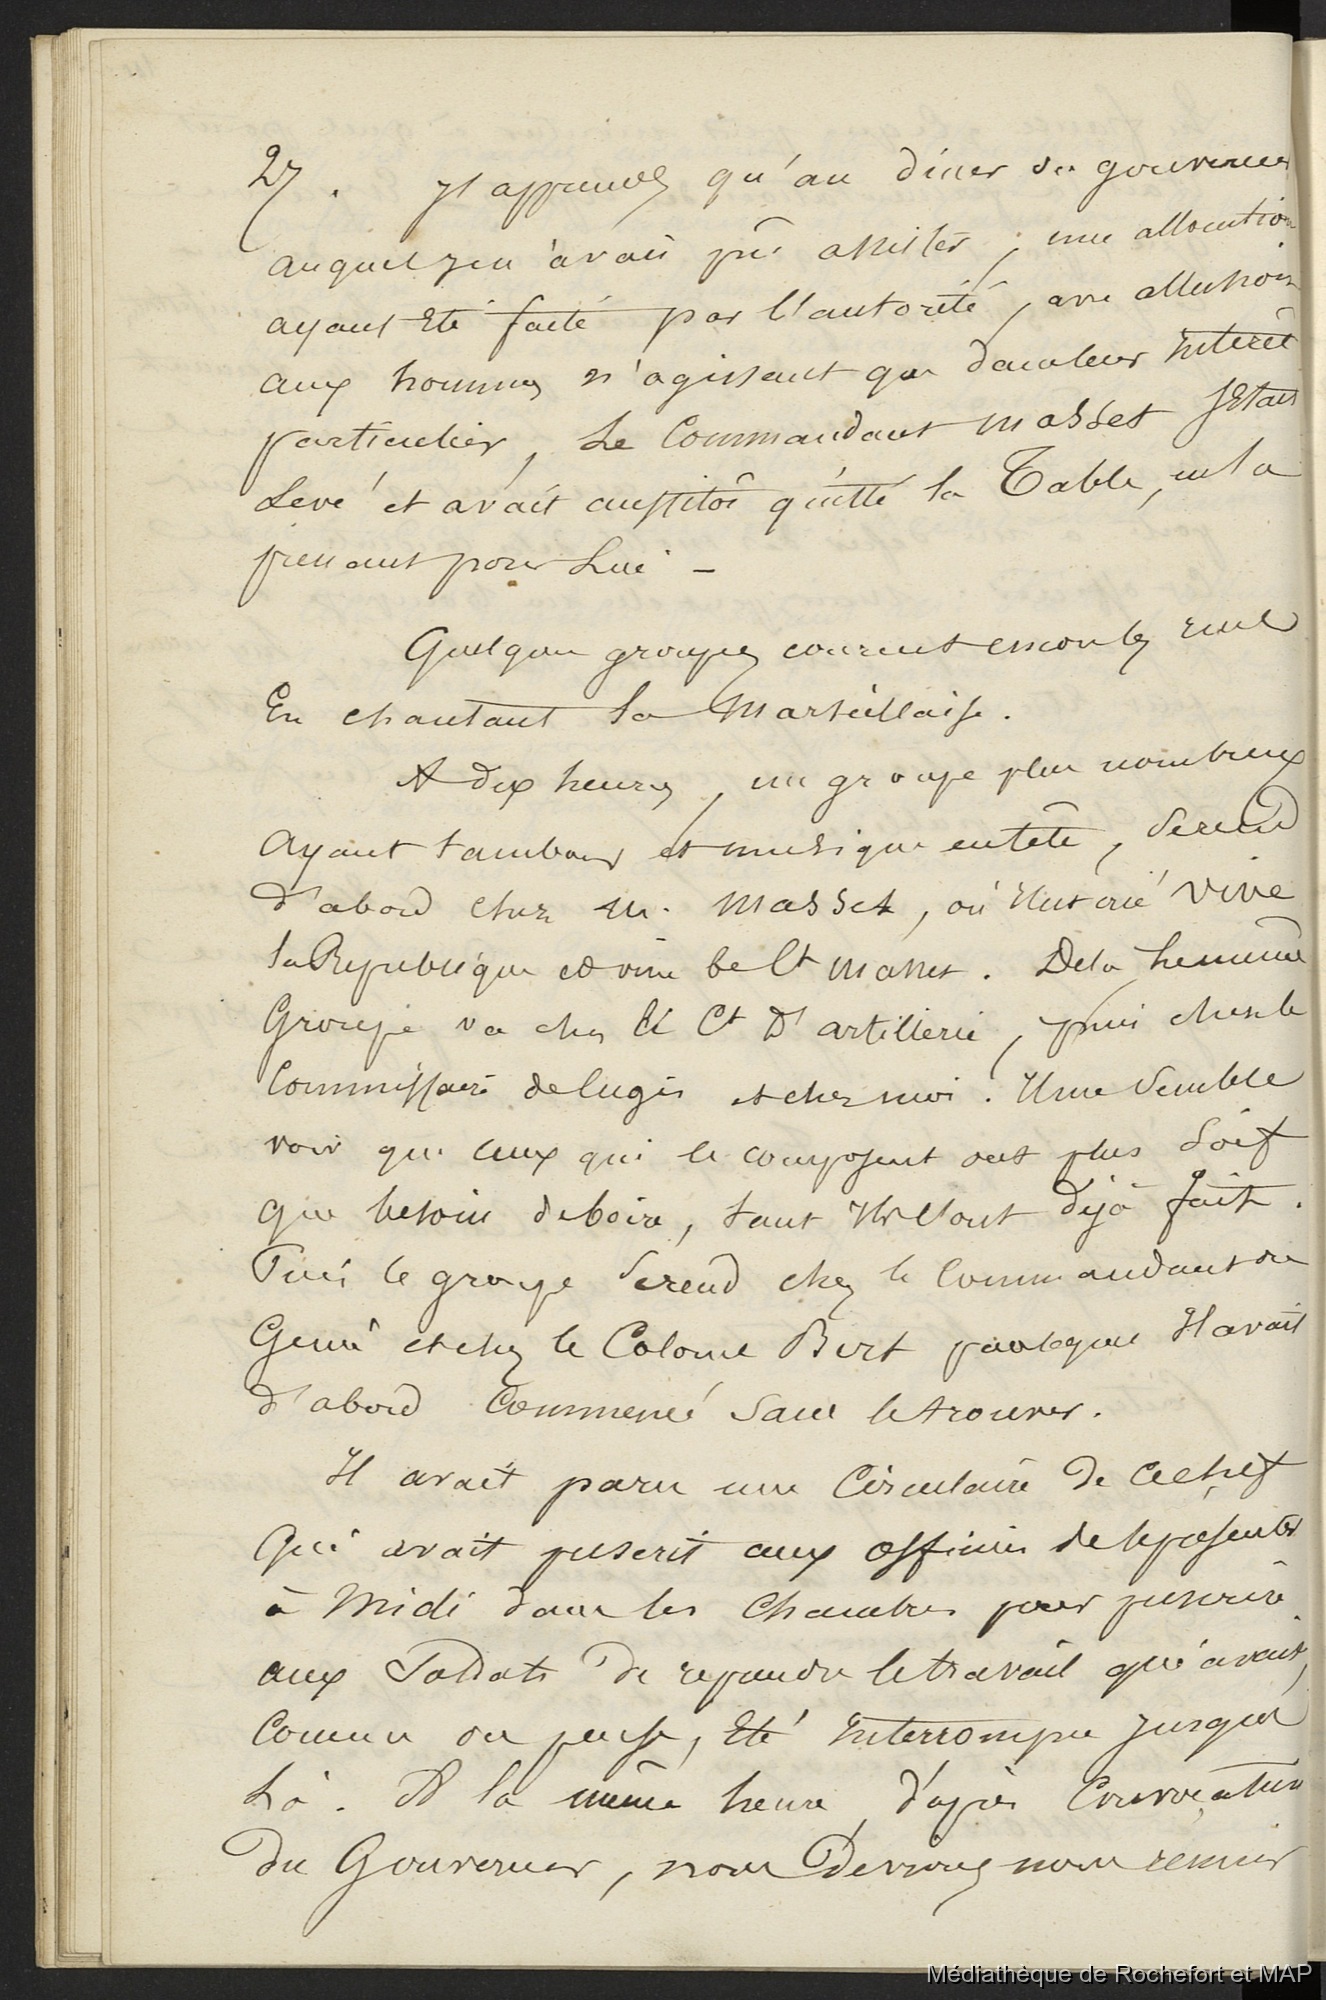 27. J'apprends qu'au diner du gouverneur
auquel je n'avais pu assister, une allocution
ayant été faite par l'autorité, avec allusion
aux hommes n'agissant que dans leur intérêt
particulier, Le Commandant Masset s'était
Levé et avait aussitôt quitté la Table, en la
prenant pour Lui —
Quelques groupes courent les rues
En chantant la Marseillaise.
A dix heures, un groupe plus nombreux
Ayant tambour et musique en tête, se rend
d'abord chez M. Masset, où il est crié Vive
la République et vive le Ct Masset. De là le même
Groupe va chez le Ct d'artillerie, puis chez le
Commissaire de Lugis et chez moi. Il me semble
voir que ceux qui le composent ont plus soif
que besoin de boire, tant ils l'ont déjà fait.
Puis le groupe se rend chez le Commandant du
Génie et chez le Colonel Bert par lequel il avait
d'abord Commencé sans le trouver.
Il avait paru une Circulaire de ce chef
Qui avait prescrit aux officiers de se présenter
à Midi dans les Chambres pour prescrire
aux Soldats de reprendre le travail qui avait,
Comme on pense, Eté interrompu jusque
Là. A la même heure, d'après Convocation
Du Gouverneur, nous Devions nous réunir
Médiathèque de Rochefort et MAP